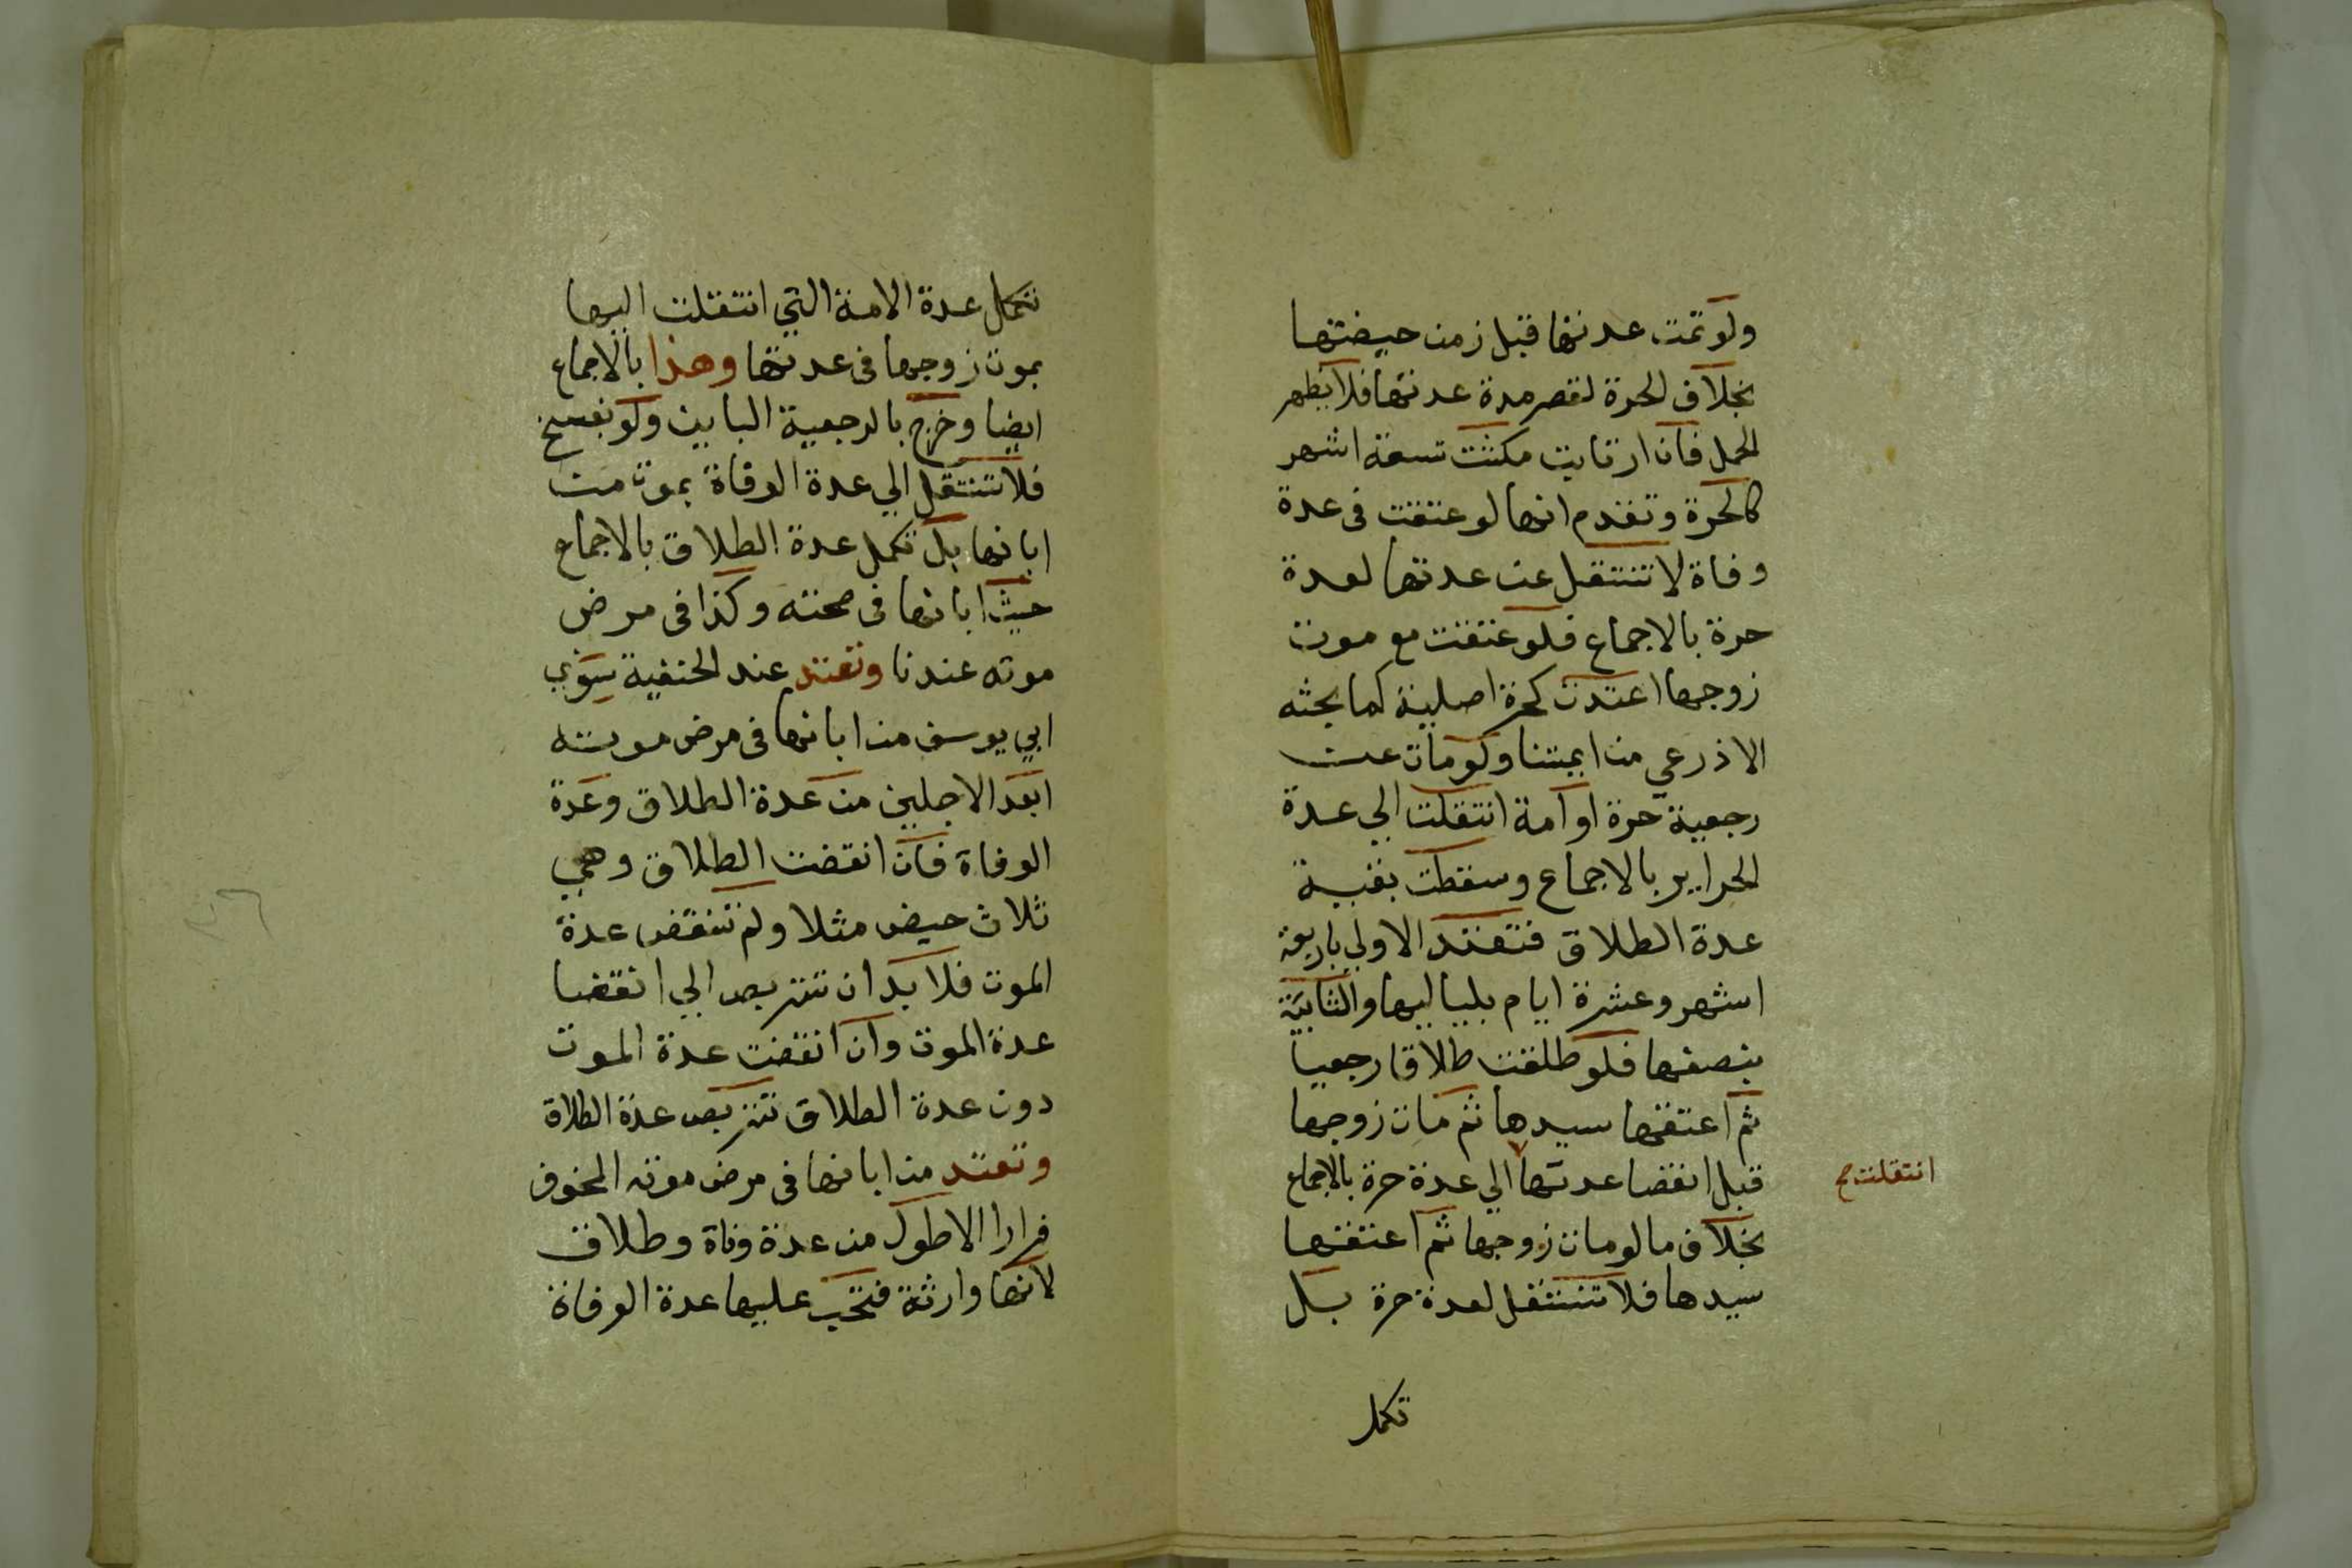 ولو تمت عدتها قبل زمن حيضتها
بخلاف الحرة لقصر مدة عدتها فلا يظهر
الحمل فان ارتابت مكثت تسعة اشهر
كالحرة وتقدم انها لو عتقت فى عدة
وفاة لا تنتقل عن عدتها لعدة
حرة بالاجماع فلو عتقت مع موت
زوجها اعتدت كحرة اصلية كما بحثه
الاذرعي من ايمتنا ولو مات عن
رجعية حرة او امة انتقلت الي عدة
الحراير بالاجماع وسقطت بقية
عدة الطلاق فتعتد الاولي باربعة
اشهر وعشرة ايام بلياليها والثانية
بنصفها فلو طلقت طلاقا رجعيا
ثم اعتقها سيدها ثم مات زوجها
قبل انقضا عدتها الي عدة حرة بالاجماع
انتقلت صح
بخلاف ما لو مات زوجها ثم اعتقها
سيدها فلا تنتقل لعدة حرة بل
تكمل
تكمل عدة الامة التي انتقلت اليها
بموت زوجها فى عدتها وهذا بالاجماع
ايضا وخرج بالرجعية الباين ولو بفسخ
فلا تنتقل الي عدة الوفاة بموت من
ابانها بل تكمل عدة الطلاق بالاجماع
حيث ابانها فى صحته وكذا فى مرض
موته عندنا وتعتد عند الحنفية سوي
ابي يوسف من ابانها فى مرض موته
ابعد الاجلين من عدة الطلاق وعدة
الوفاة فان انقضت الطلاق وهي
ثلاث حيض مثلا ولم تنقض عدة
الموت فلا بد ان تتربص الي انقضا
عدة الموت وان انقضت عدة الموت
دون عدة الطلاق تتربص عدة الطلاق
وتعتد من ابانها فى مرض موته المخوف
فرارا الاطول من عدة وفاة وطلاق
لانها وارثة فتجب عليها عدة الوفاة